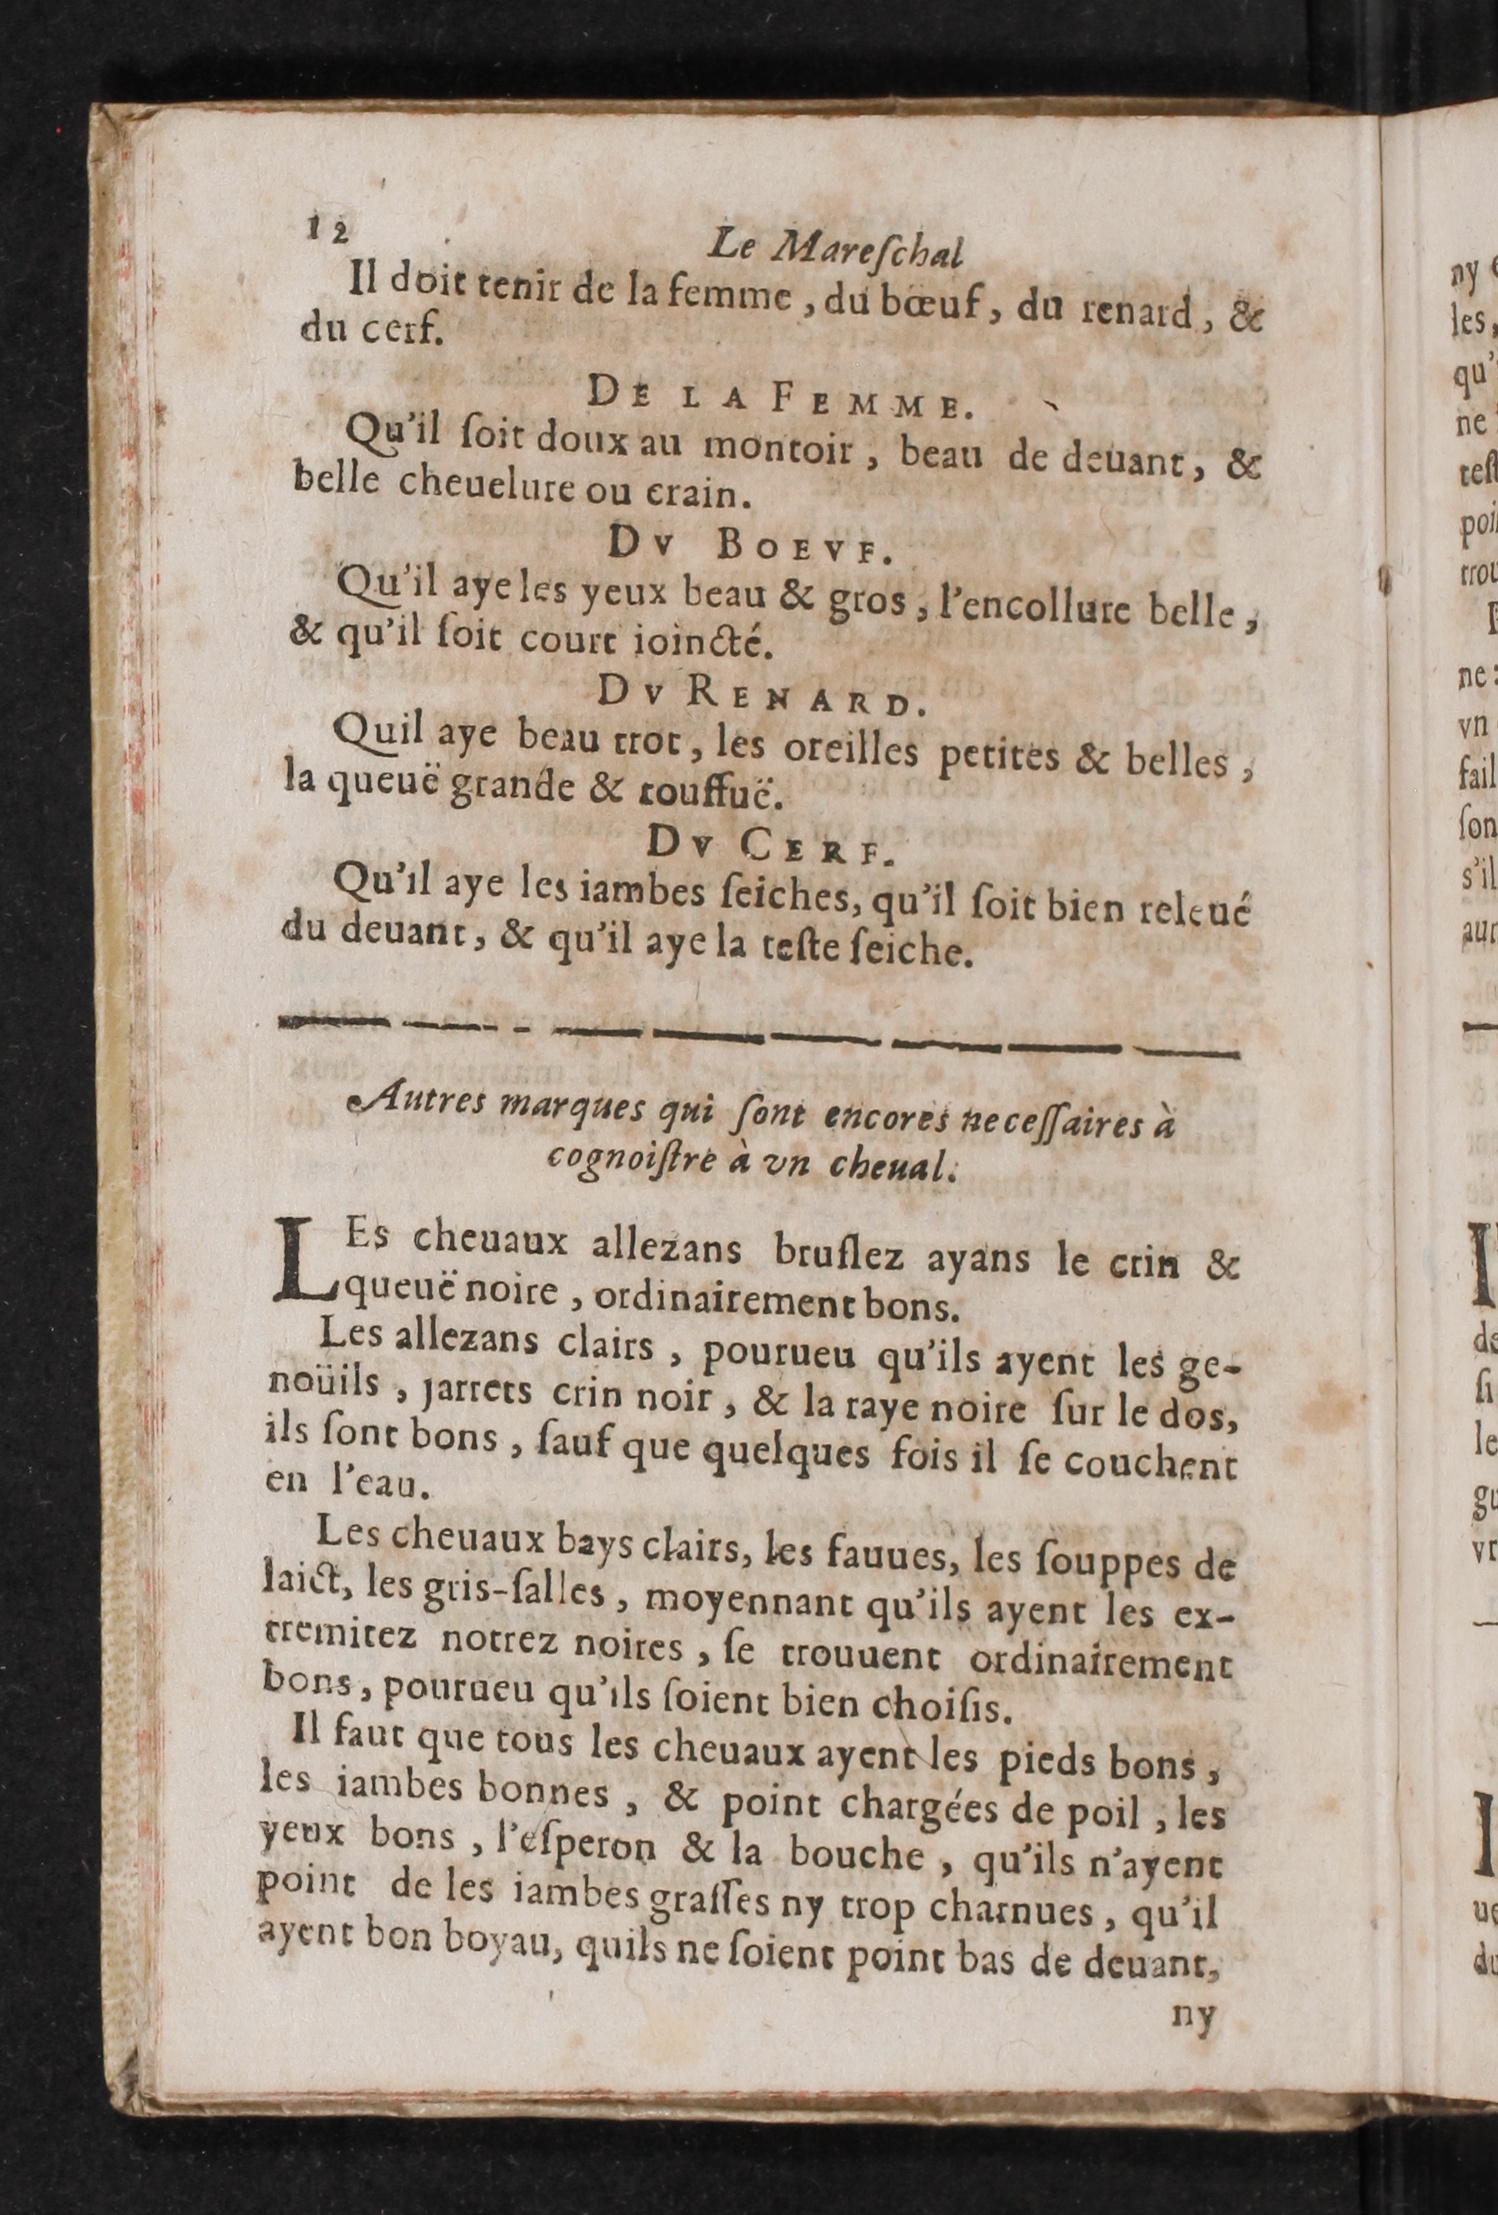 12
Le Mareſchal
Il doit tenir de la femme, du bœuf, du renard, &
du cerf.
DE LA FEMME.
Qu'il ſoit doux au montoir, beau de deuant, &
belle cheuelure ou crain.
DV BOEVF.
Qu'il aye les yeux beau & gros, l'encollure belle,
& qu'il ſoit court ioincté.
DV RENARD.
Quil aye beau trot, les oreilles petites & belles,
la queuë grande & touffuë.
DV CERF.
Qu'il aye les iambes ſeiches, qu'il ſoit bien releué
du deuant, & qu'il aye la teſte ſeiche.
Autres marques qui ſont encores neceſſaires à
cognoiſtre à vn cheual.
LEs cheuaux allezans bruſlez ayans le crin &
queuë noire, ordinairement bons.
Les allezans clairs, pourueu qu'ils ayent les ge-
noüils, jarrets crin noir, & la raye noire ſur le dos,
ils ſont bons, ſauf que quelques fois il ſe couchent
en l'eau.
Les cheuaux bays clairs, les fauues, les ſouppes de
laict, les gris-ſalles, moyennant qu'ils ayent les ex-
tremitez notrez noires, ſe trouuent ordinairement
bons, pourueu qu'ils ſoient bien choiſis.
Il faut que tous les cheuaux ayent les pieds bons,
les iambes bonnes, & point chargées de poil, les
yeux bons, l'eſperon & la bouche, qu'ils n'ayent
point de les iambes graſſes ny trop charnues, qu'il
ayent bon boyau, quils ne ſoient point bas de deuant,
ny